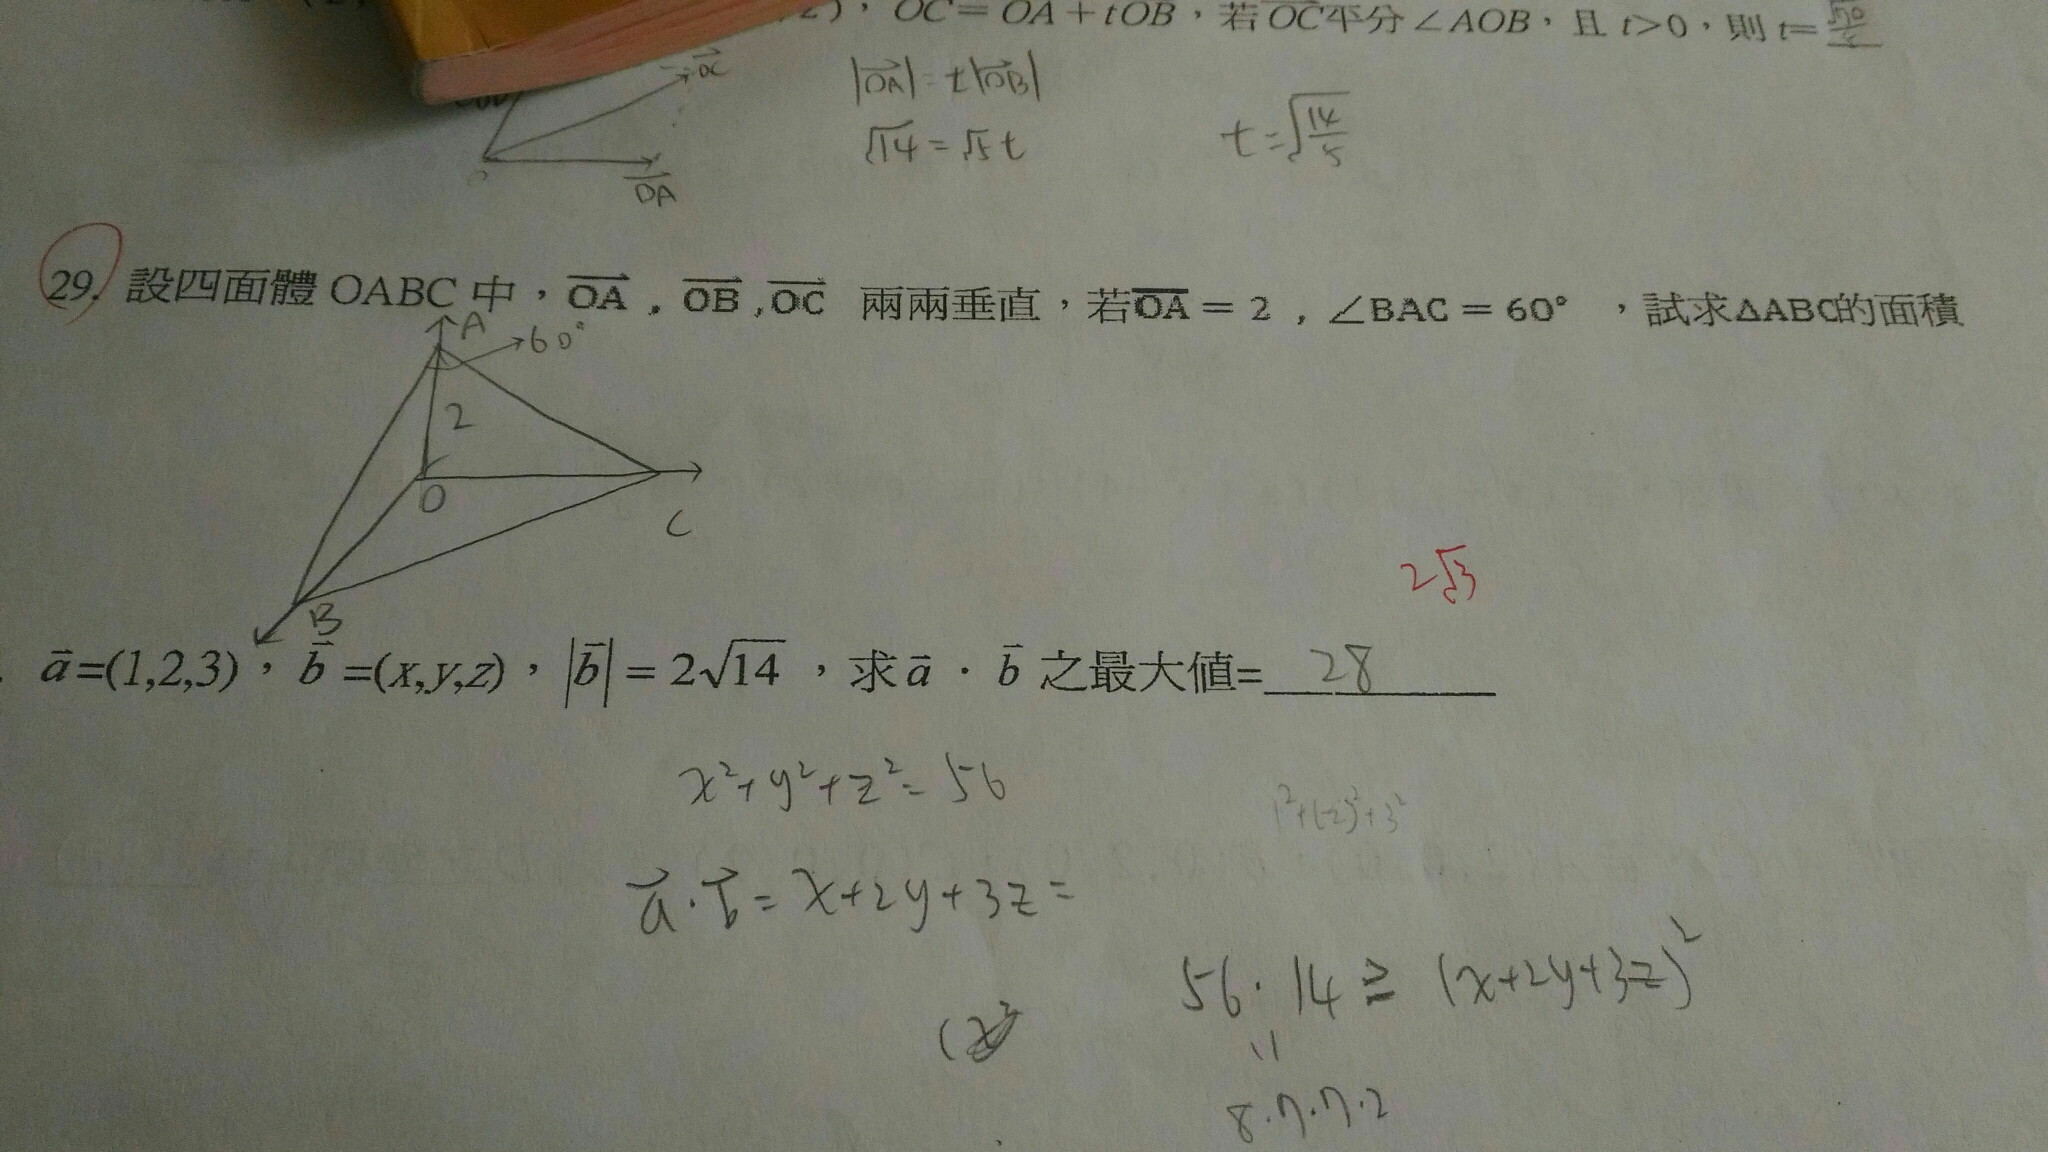 OC=OA+tOB，若OC平分∠AOB，且 t>0，則 t=
OC
|OA|=t|OB|
√14=√5 t
t=√(14/5)
OA
29. 設四面體 OABC 中，OA , OB ,OC 兩兩垂直，若OA = 2 , ∠BAC = 60° ，試求ΔABC的面積
A
60°
2
O
C
B
2√3
a=(1,2,3)，b=(x,y,z)，|b|=2√14，求a · b 之最大值= 28
x²+y²+z²=56
1²+(-2)²+3²
a·b=x+2y+3z=
56·14≥(x+2y+3z)²
8·7·7·2